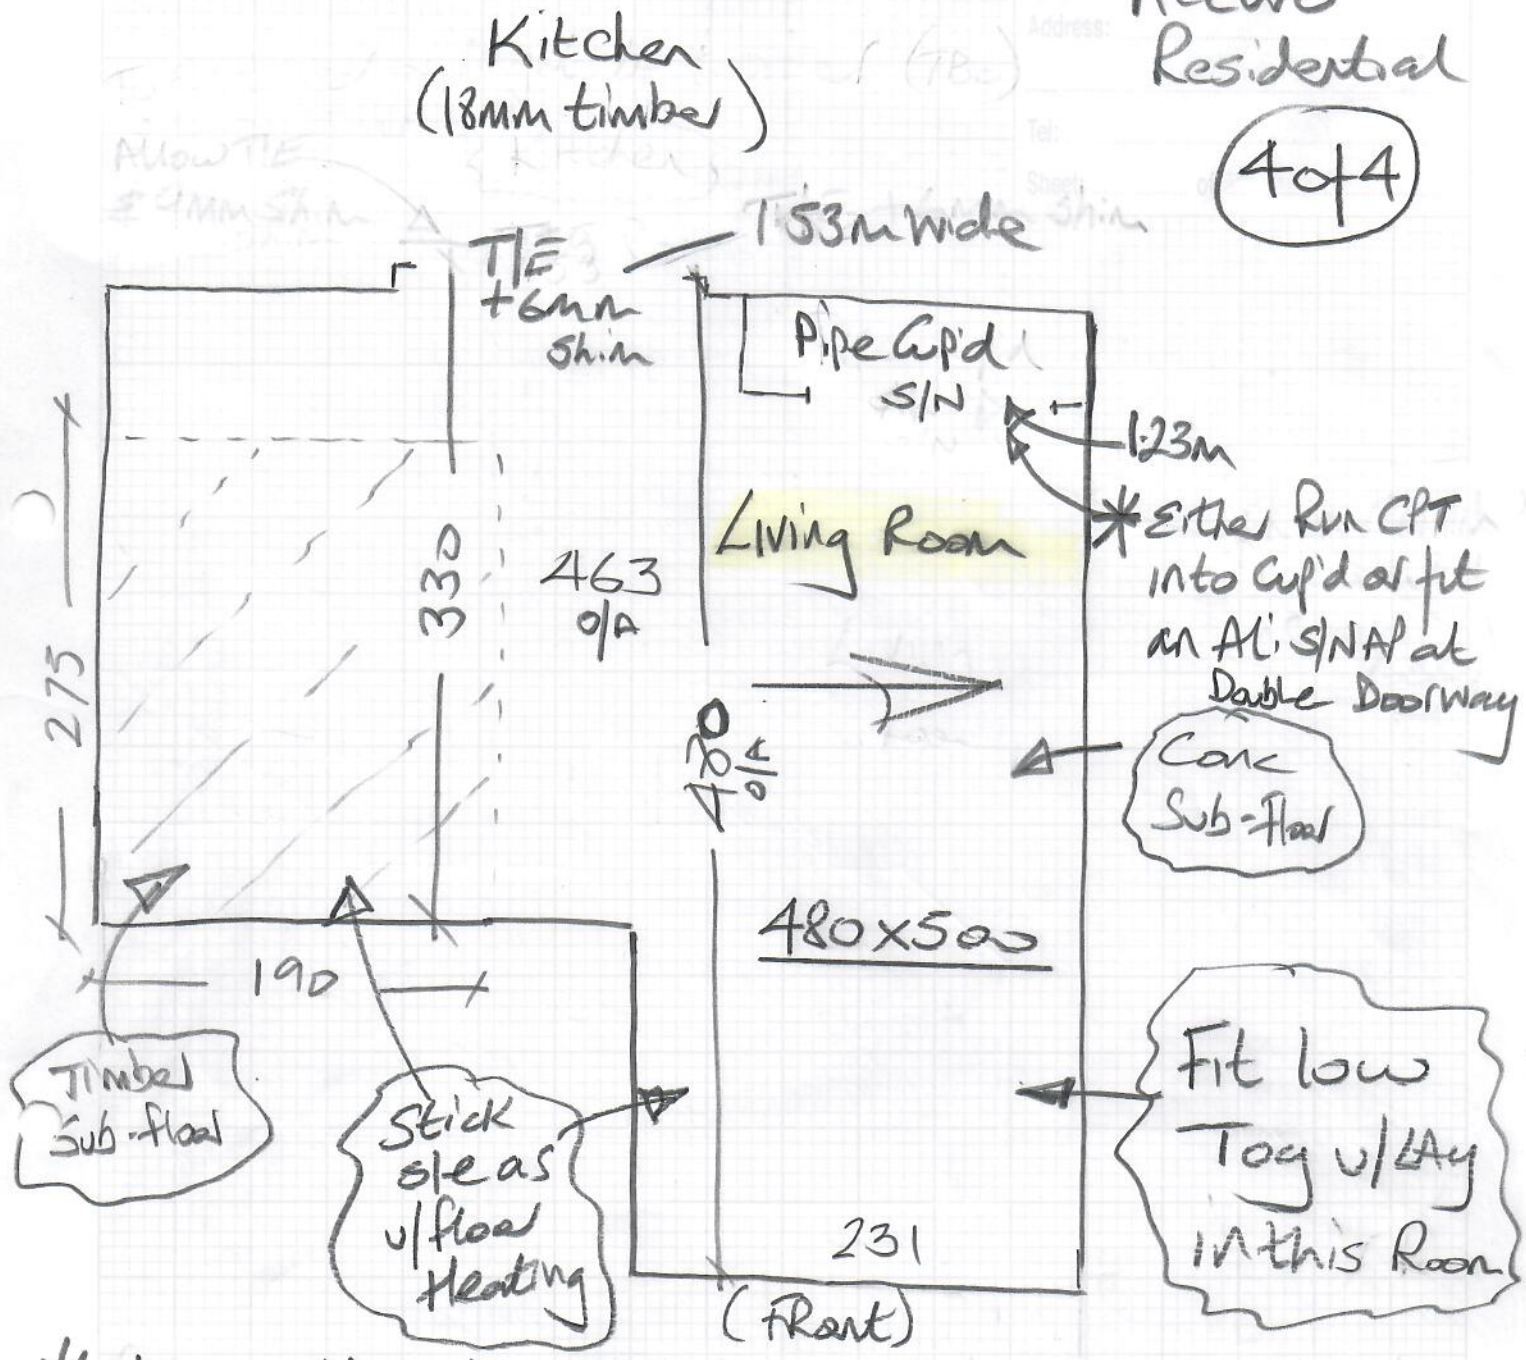 Kitchen
(18mm timber)
Address:
Residential
Tel:
4 of 4
Allow T/E
& 9mm Shim
Sheet:
of
T/E
+6mm
Shim
1.53m Wide
Pipe Cup'd
S/N
1.23m
Living Room
* Either Run CPT
into Cup'd or fit
an Ali S/NAP at
Double Doorway
330
463
O/A
275
480
O/A
Conc
Sub-Floor
480x500
190
Timber
Sub-floor
Stick
s/e as
u/floor
Heating
Fit low
Tog u/LAy
in this Room
231
(FRont)